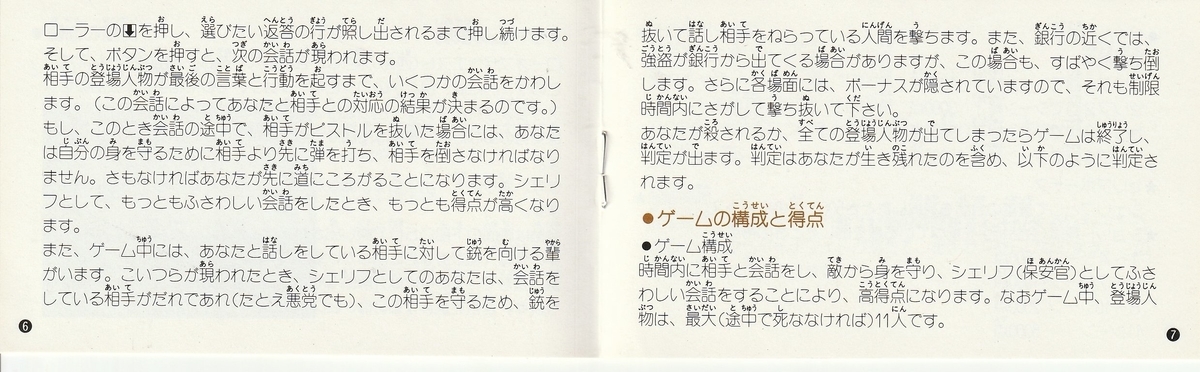 ローラーの⬇を押し、選びたい返答の行が照し出されるまで押し続けます。
そして、ボタンを押すと、次の会話が現われます。
相手の登場人物が最後の言葉と行動を起すまで、いくつかの会話をかわし
ます。（この会話によってあなたと相手との対応の結果が決まるのです。）
もし、このとき会話の途中で、相手がピストルを抜いた場合には、あなた
は自分の身を守るために相手より先に弾を打ち、相手を倒さなければなり
ません。さもなければあなたが先に道にころがることになります。シェリ
フとして、もっともふさわしい会話をしたとき、もっとも得点が高くなり
ます。
また、ゲーム中には、あなたと話しをしている相手に対して銃を向ける輩
がいます。こいつらが現われたとき、シェリフとしてのあなたは、会話を
している相手がだれであれ（たとえ悪党でも）、この相手を守るため、銃を
6
抜いて話し相手をねらっている人間を撃ちます。また、銀行の近くでは、
強盗が銀行から出てくる場合がありますが、この場合も、すばやく撃ち倒
します。さらに各場面には、ボーナスが隠されていますので、それも制限
時間内にさがして撃ち抜いて下さい。
あなたが殺されるか、全ての登場人物が出てしまったらゲームは終了し、
判定が出ます。判定はあなたが生き残れたのを含め、以下のように判定さ
れます。
●ゲームの構成と得点
●ゲーム構成
時間内に相手と会話をし、敵から身を守り、シェリフ（保安官）としてふさ
わしい会話をすることにより、高得点になります。なおゲーム中、登場人
物は、最大（途中で死ななければ）11人です。
7